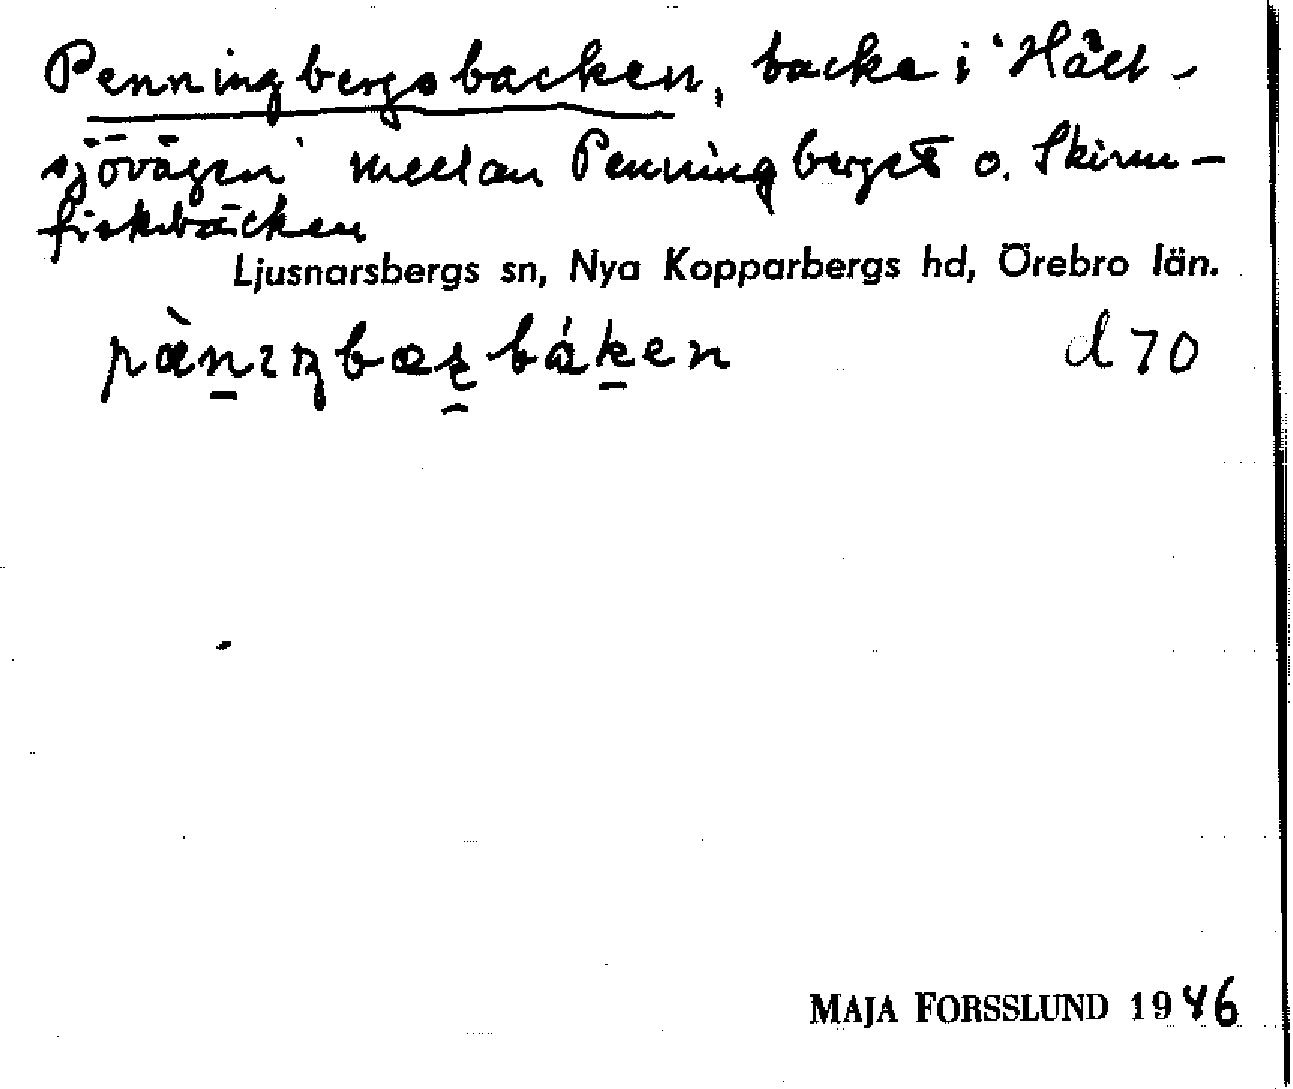 Penningbergsbacken, backe i 'Håll-
sjövägen' mellan Penningberget o. Skirm-
fiskbäcken
Ljusnarsbergs sn, Nya Kopparbergs hd, Örebro län.
d 70
MAJA FORSSLUND 1946